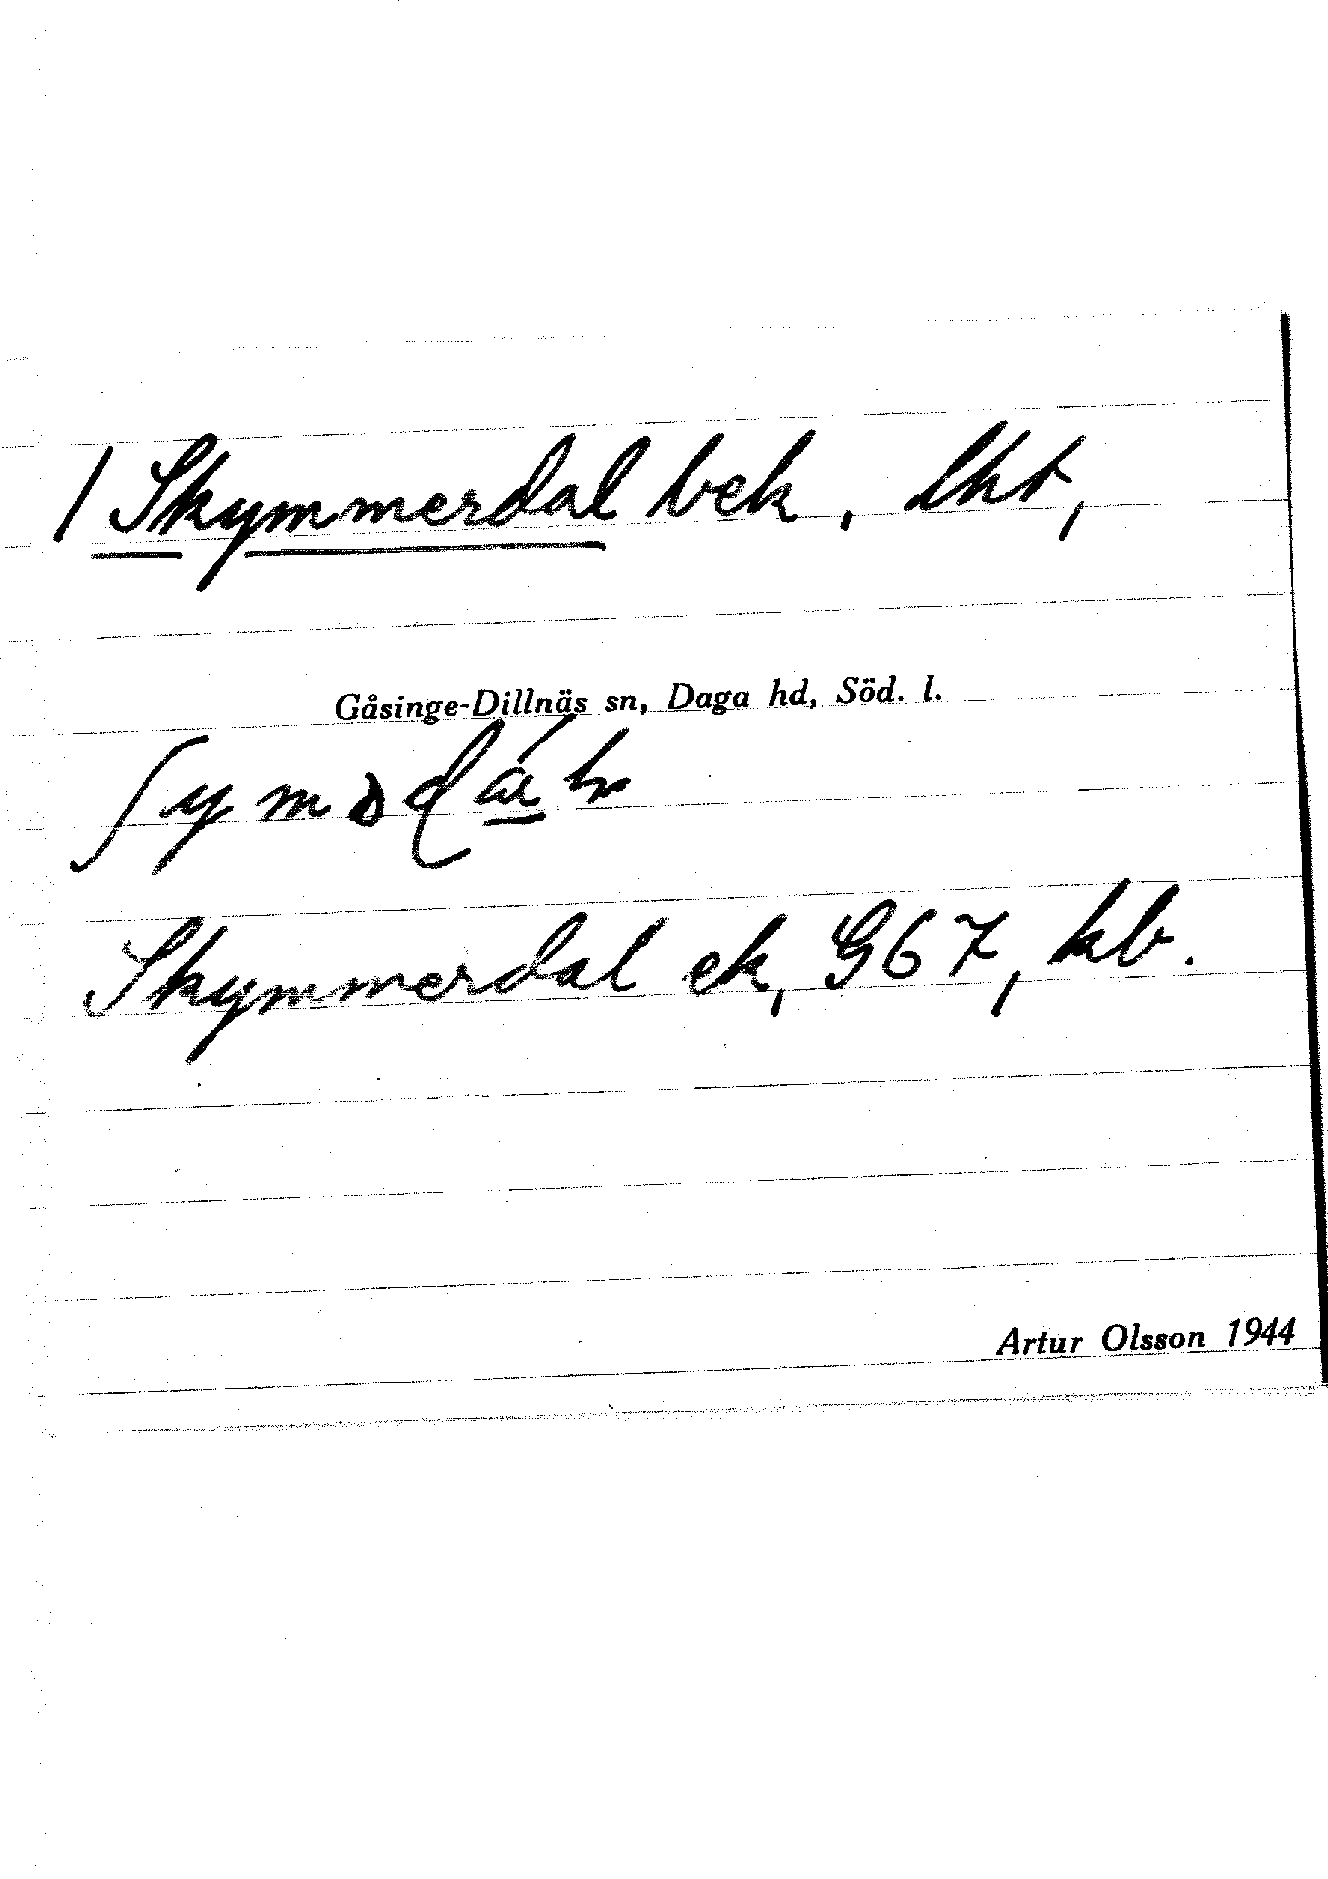 / Skymmerdal bek, lht,
Gåsinge-Dillnäs sn, Daga hd, Söd. l.
Skymmerdal ek, G67, kb.
Artur Olsson 1944